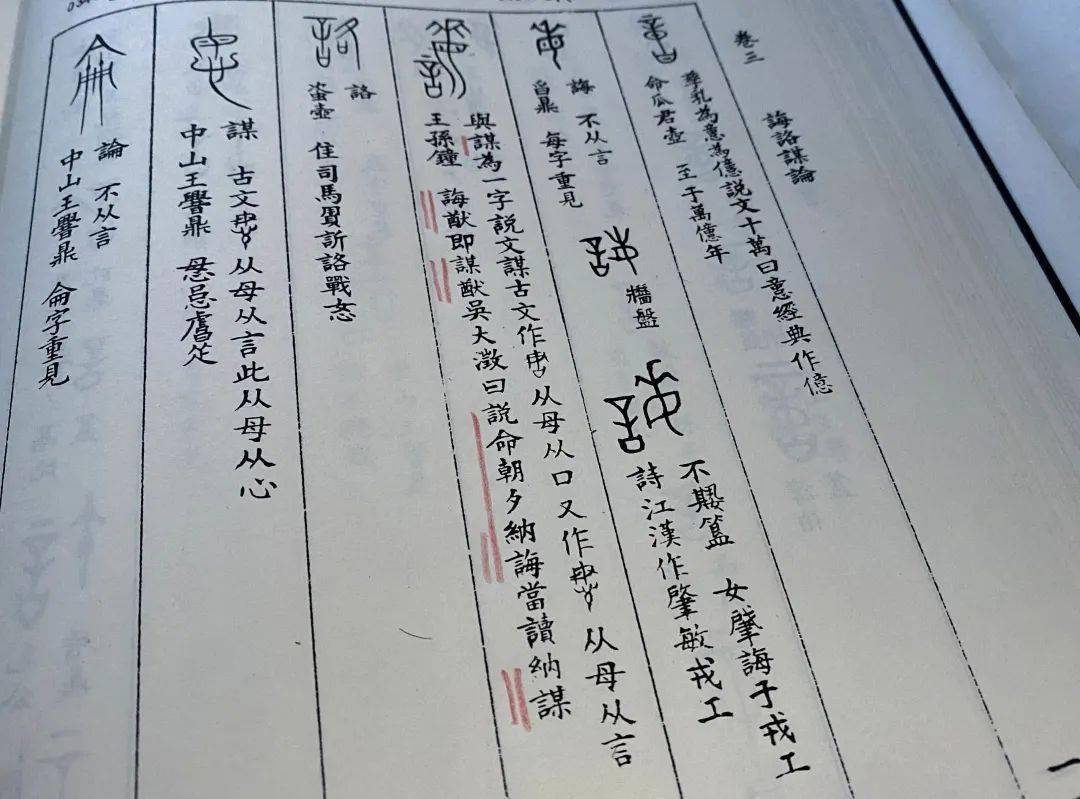 卷三
誨詻謀論
孳乳為意為億說文十萬曰意經典作億
命瓜君壺 至于萬億年
誨 不从言
曶鼎 每字重見
牆盤
不𡢁簋 女肇誨于戎工
詩江漢作肇敏戎工
與謀為一字說文謀古文作 从母从口又作 从母从言
王孫鐘 誨猷即謀猷吳大澂曰說命朝夕納誨當讀納謀
詻
𧊒壺 隹司馬賙訢詻戰忞
謀 古文 从母从言此从母从心
中山王鼎 忌
論 不从言
中山王鼎 侖字重見